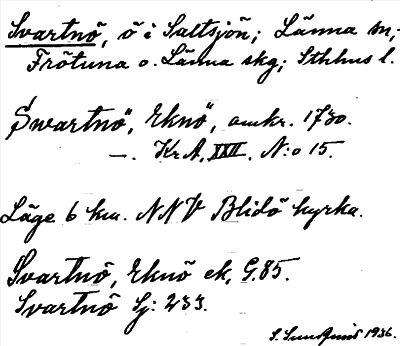 Svartnö, ö i Saltsjön; Länna sn,
Frötuna o. Länna skg; Sthlms l.
Swartnö, Eknö, omkr. 1730.
—. Kr.A. XXII. N:o 15.
Läge 6 km. NNV Blidö kyrka.
Svartnö, Eknö ek. G. 85.
Svartnö Sj: 233.
1936.